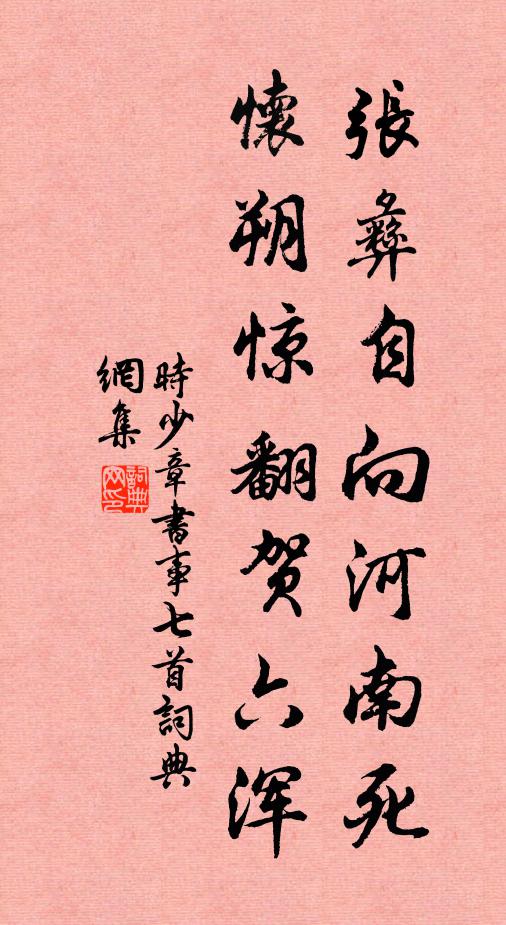 張彝自向河南死
懷朔惊翻贺六浑
時少章書事七首詞典
網集
詞典
网印